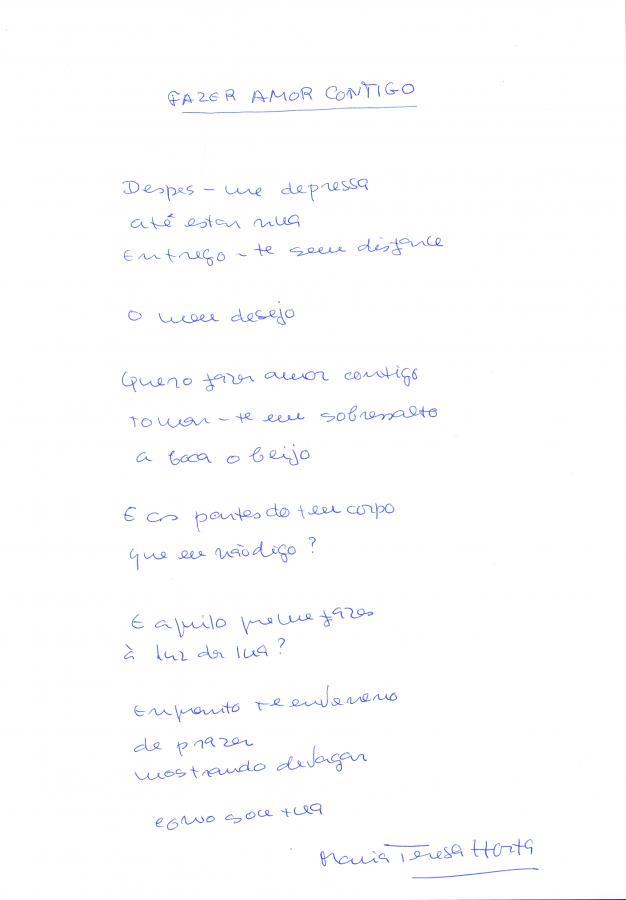 FAZER AMOR CONTIGO
Despes-me depressa
até estar nua
Entrego-te sem disfarce
O meu desejo
Quero fazer amor contigo
tomar-te em sobressalto
a boca o beijo
E as partes do teu corpo
que eu não digo?
E aquilo que me fazes
à luz da lua?
Enquanto te enveneno
de prazer
mostrando devagar
como sou tua
Maria Teresa Horta